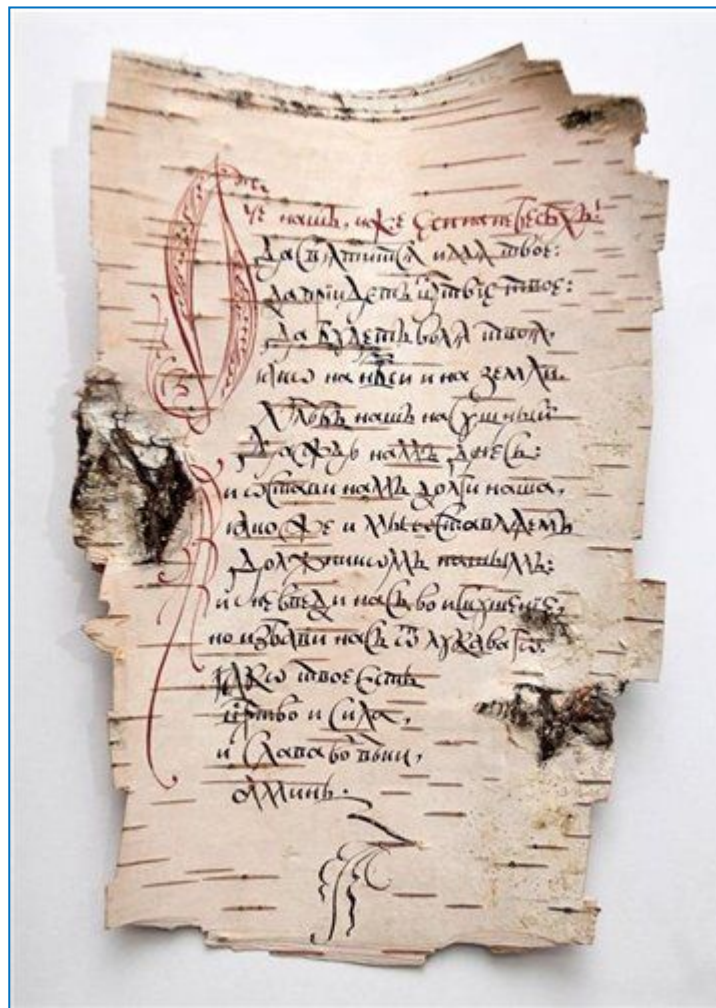 Отче нашъ, иже еси на небесѣхъ!
Да свѧтитсѧ имѧ твое:
да прїидетъ цр҃твїе твое:
да будетъ волѧ твоѧ,
ꙗкѡ на нб҃си и на земли.
Хлѣбъ нашъ насущный
даждь намъ днесь:
и ѡстави намъ долги наша,
ꙗкоже и мы ѡставлѧемъ
должникѡмъ нашымъ:
и не введи насъ во искушенїе,
но избави насъ ѿ лукавагѡ.
Ꙗкѡ твое есть
цр҃тво и сила,
и слава во вѣки,
аминь.